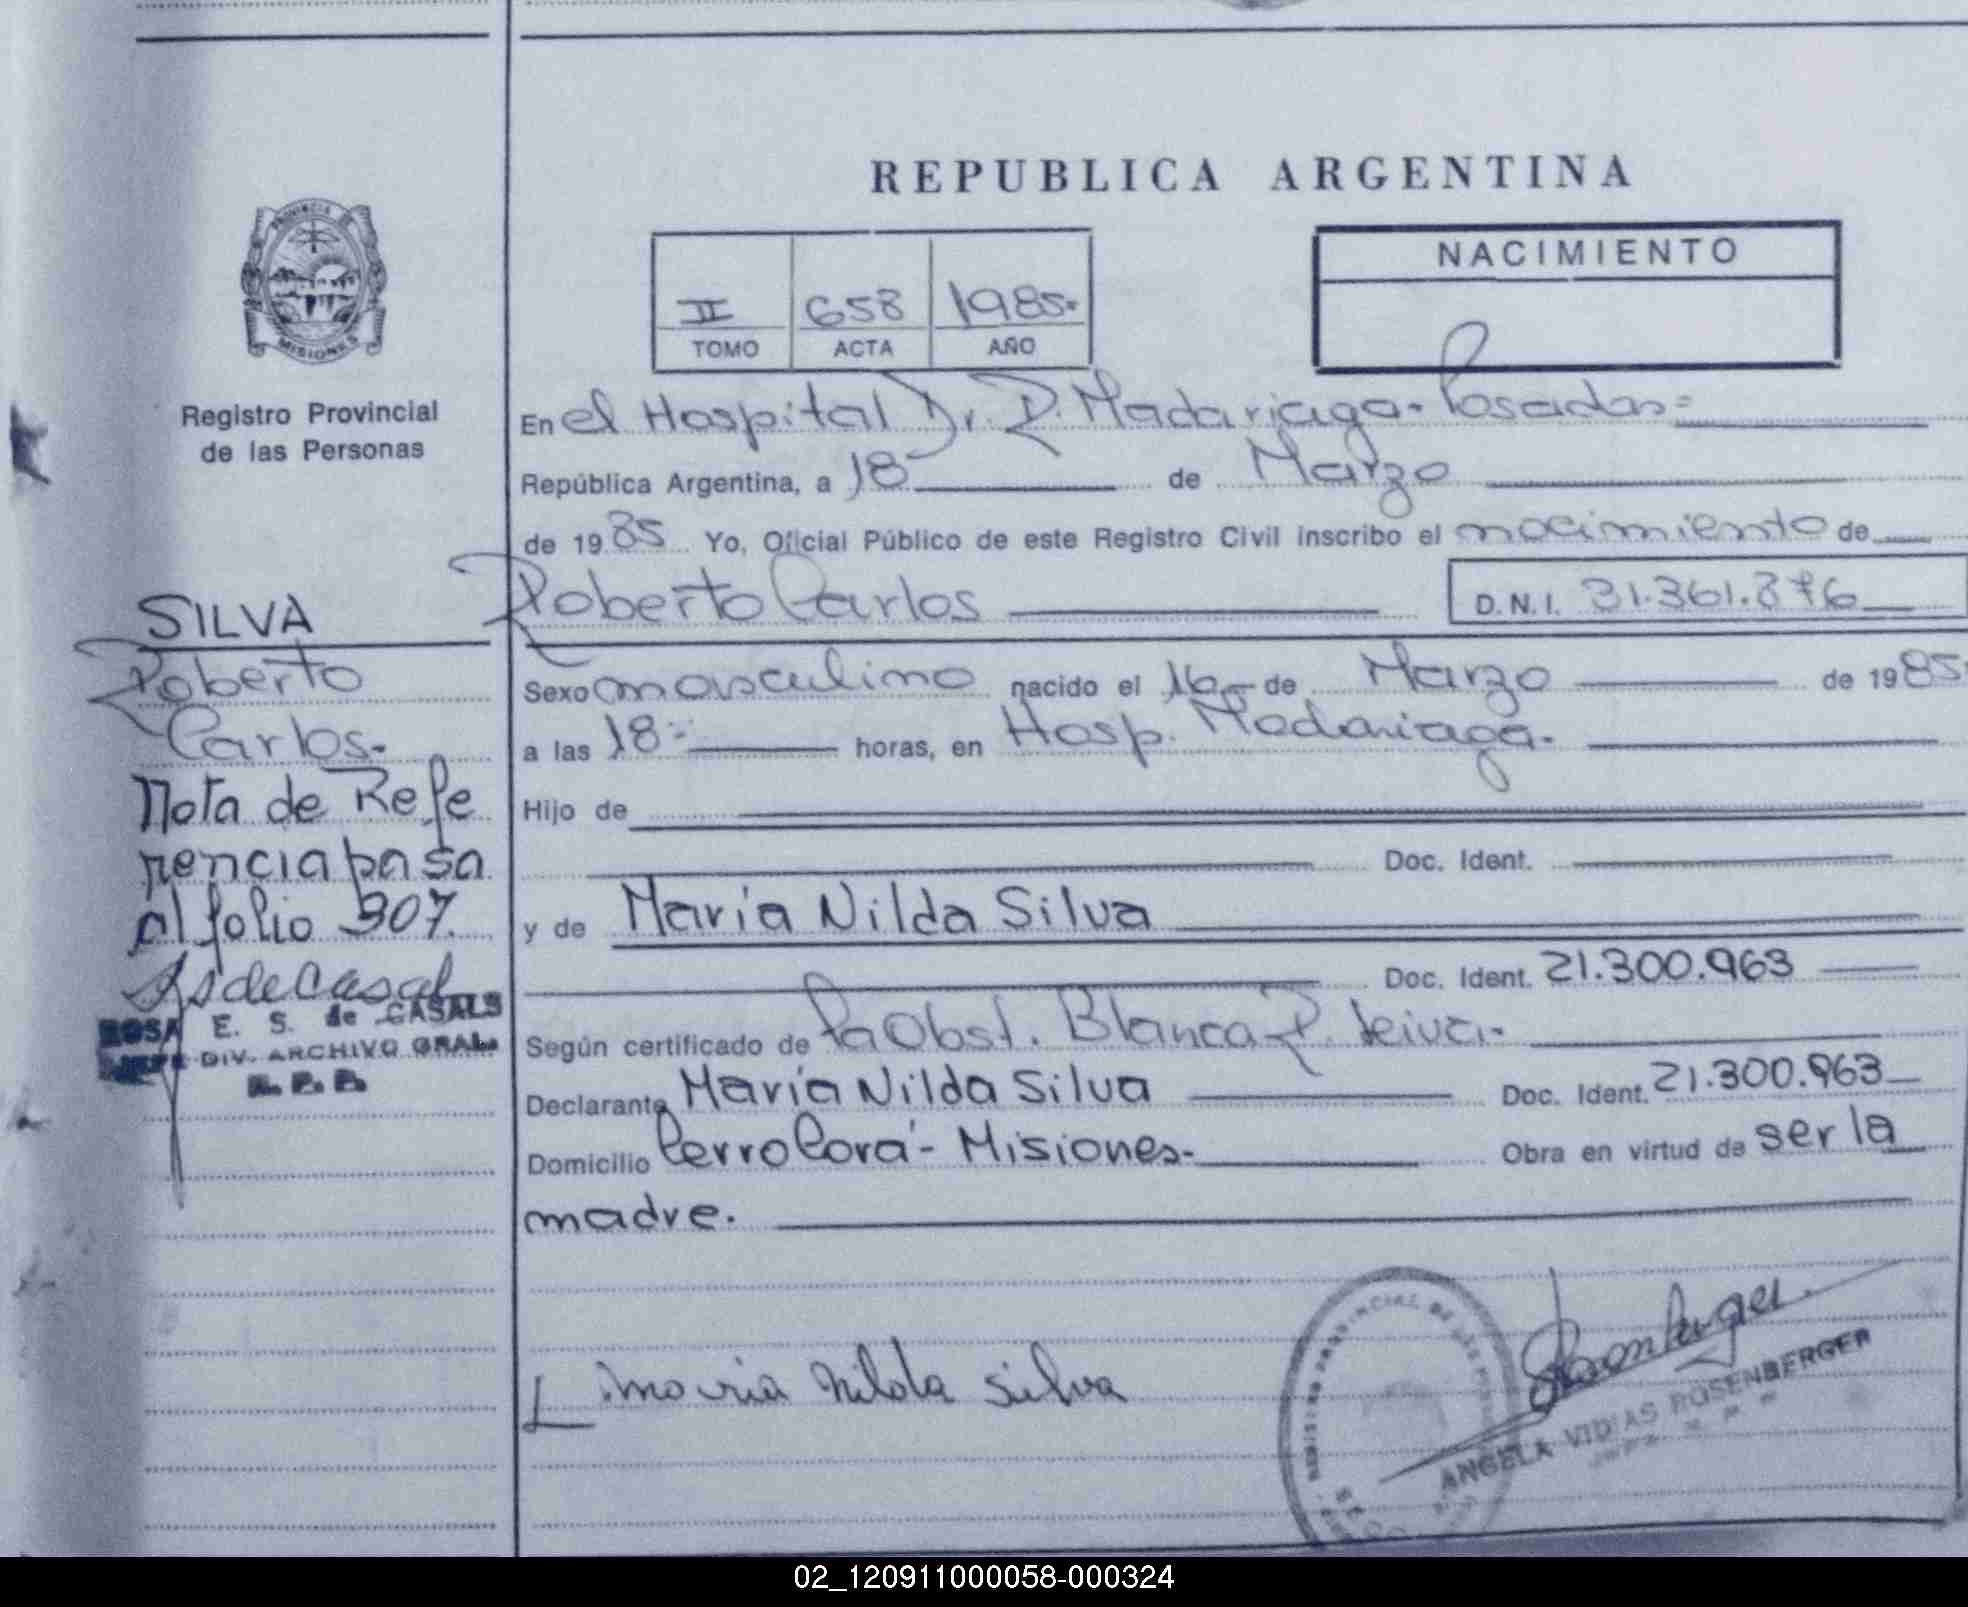 REPUBLICA ARGENTINA
NACIMIENTO
II 658 1985.
TOMO ACTA AÑO
PROVINCIA DE
MISIONES
Registro Provincial
de las Personas
SILVA
Roberto
Carlos.
Nota de Refe
rencia pasa
al folio 307.
ROSA E. S. de CASALS
JEFE DIV. ARCHIVO GRAL.
R. P. P.
En el Hospital Dr. R. Madariaga. Posadas=
República Argentina, a 18 de Marzo
de 1985 Yo, Oficial Público de este Registro Civil inscribo el nacimiento de
Roberto Carlos D.N.I. 31.361.876
Sexo masculino nacido el 16 de Marzo de 1985
a las 18= horas, en Hosp. Madariaga.
Hijo de
Doc. Ident.
y de María Nilda Silva
Doc. Ident. 21.300.963
Según certificado de Pa Obst. Blanca R. Leiva.
Declarante María Nilda Silva Doc. Ident. 21.300.963
Domicilio Cerro Corá - Misiones. Obra en virtud de ser la
madre.
maria nilda silva
ANGELA VIDIAS ROSENBERGER
02_120911000058-000324